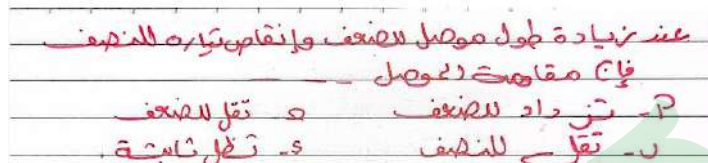 عند زيادة طول موصل للضعف وإنقاص تياره للنصف
فإن مقاومة الموصل ـ ـ ـ ـ
أ- تزداد للضعف ج- تقل للضعف
ب- تقل للنصف د- تظل ثابتة